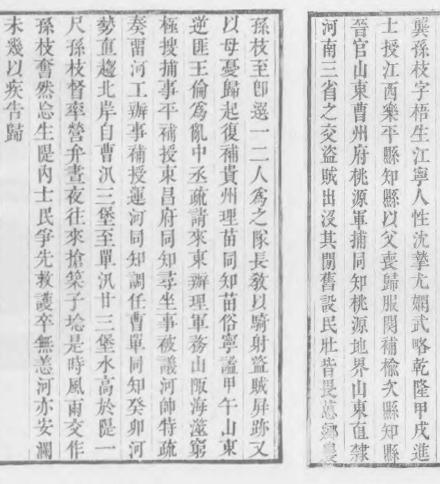 龔孫枝字梧生江寧人性沈摯尤嫻武略乾隆甲戌進
士授江西樂平縣知縣以父喪歸服闋補榆次縣知縣
晉官山東曹州府桃源軍捕同知桃源地界山東直隸
河南三省之交盜賊出沒其閒舊設民壯皆畏葸
孫枝至卽選一二人爲之隊長敎以騎射盜賊屏跡又
以母憂歸起復補貴州理苗同知苗俗寧謐甲午山東
逆匪王倫爲亂中丞疏請來東辦理軍務山陬海澨窮
極搜捕事平補授東昌府同知尋坐事被議河帥特疏
奏畱河工辦事補授運河同知調任曹單同知癸卯河
勢直趨北岸自曹汛三堡至單汛廿三堡水高於隄一
尺孫枝督率營弁晝夜往來搶築子埝是時風雨交作
孫枝奮然忘生隄內士民爭先救護卒無恙河亦安瀾
未幾以疾告歸